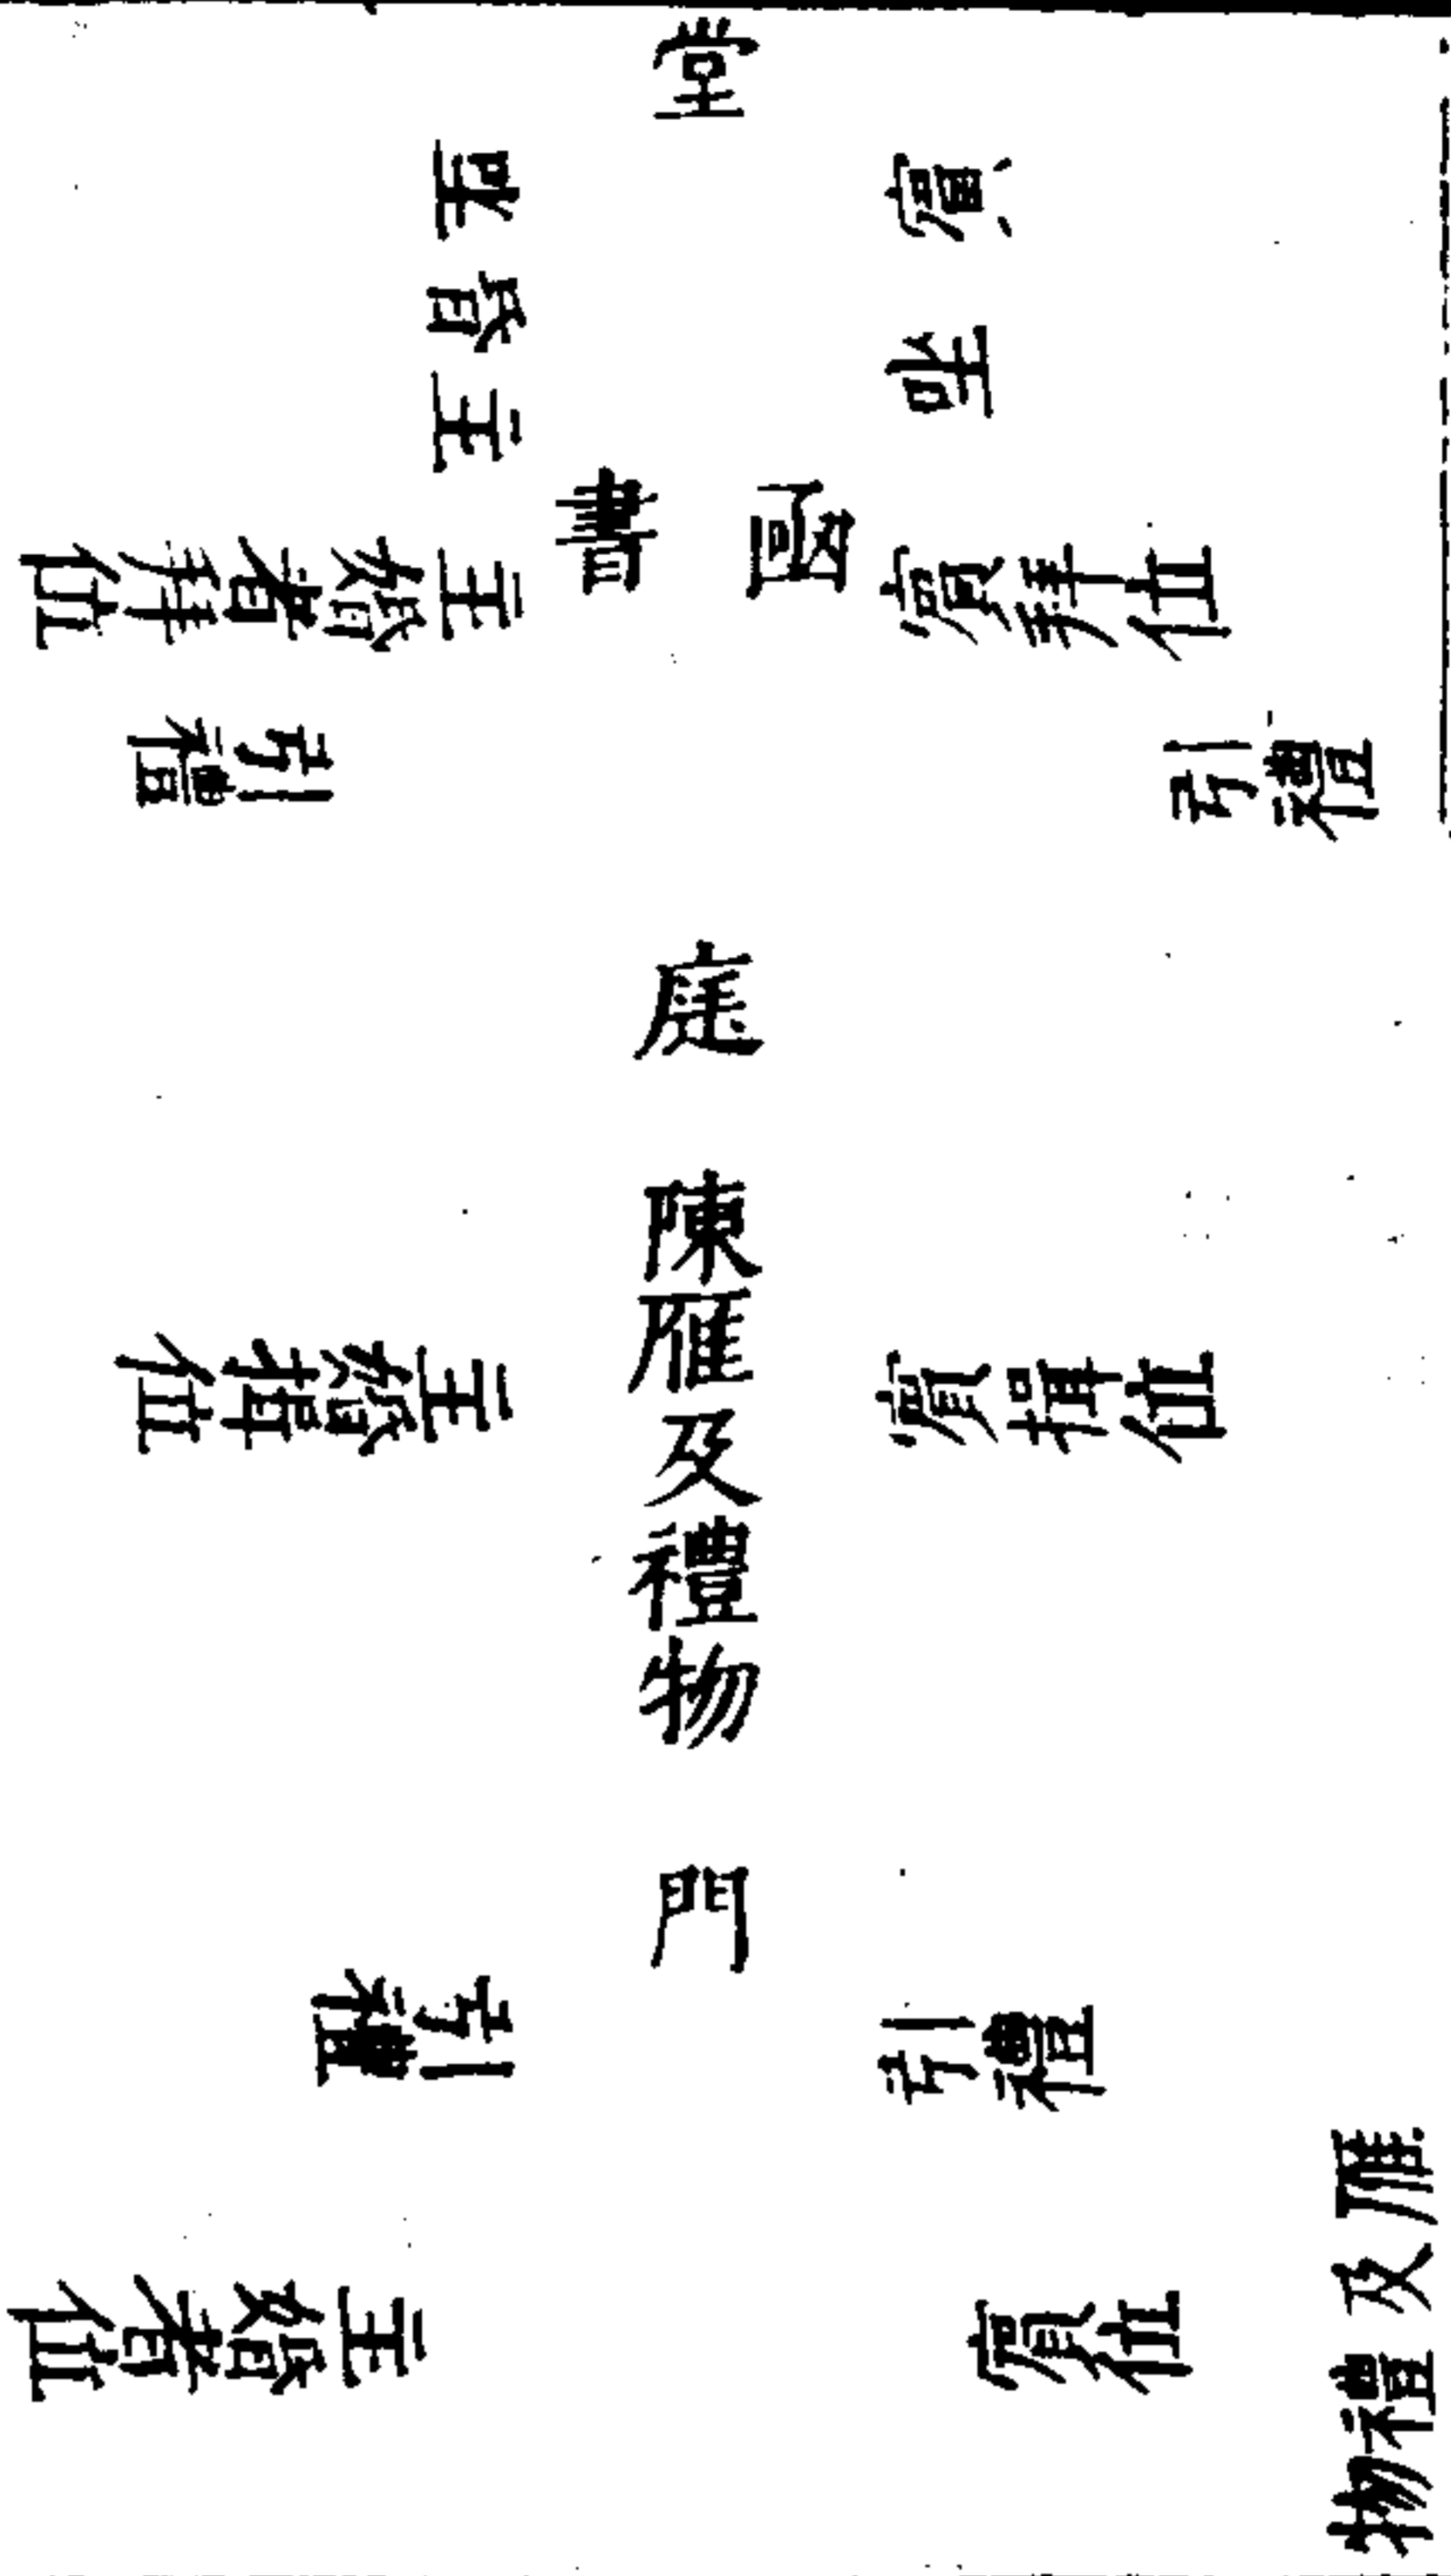 堂
賓坐
主昏坐
書 函
賓拜位
主婚者拜位
引禮
引禮
庭
陳雁及禮物
賓揖位
主婚揖位
門
引禮
引禮
賓位
主婚者位
雁及禮物